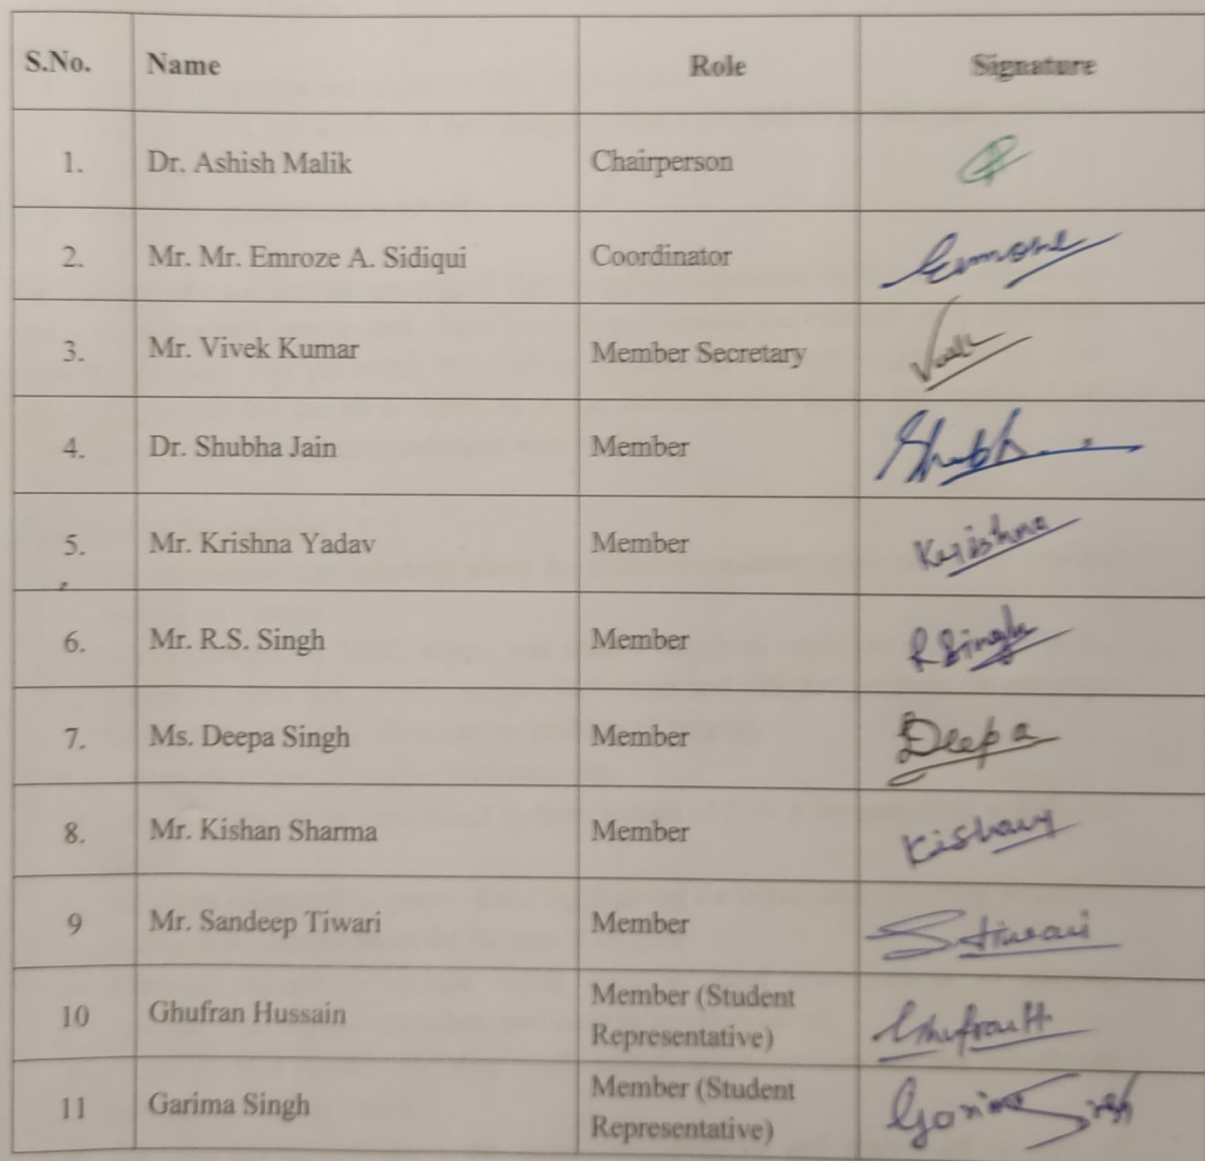 S.No. Name Role Signature
1. Dr. Ashish Malik Chairperson
2. Mr. Mr. Emroze A. Sidiqui Coordinator
3. Mr. Vivek Kumar Member Secretary
4. Dr. Shubha Jain Member Shubh
5. Mr. Krishna Yadav Member Krishna
6. Mr. R.S. Singh Member RSingh
7. Ms. Deepa Singh Member Deepa
8. Mr. Kishan Sharma Member Kishan
9 Mr. Sandeep Tiwari Member Stiwari
10 Ghufran Hussain Member (Student
Representative) Ghufran H.
11 Garima Singh Member (Student
Representative) Garima Singh